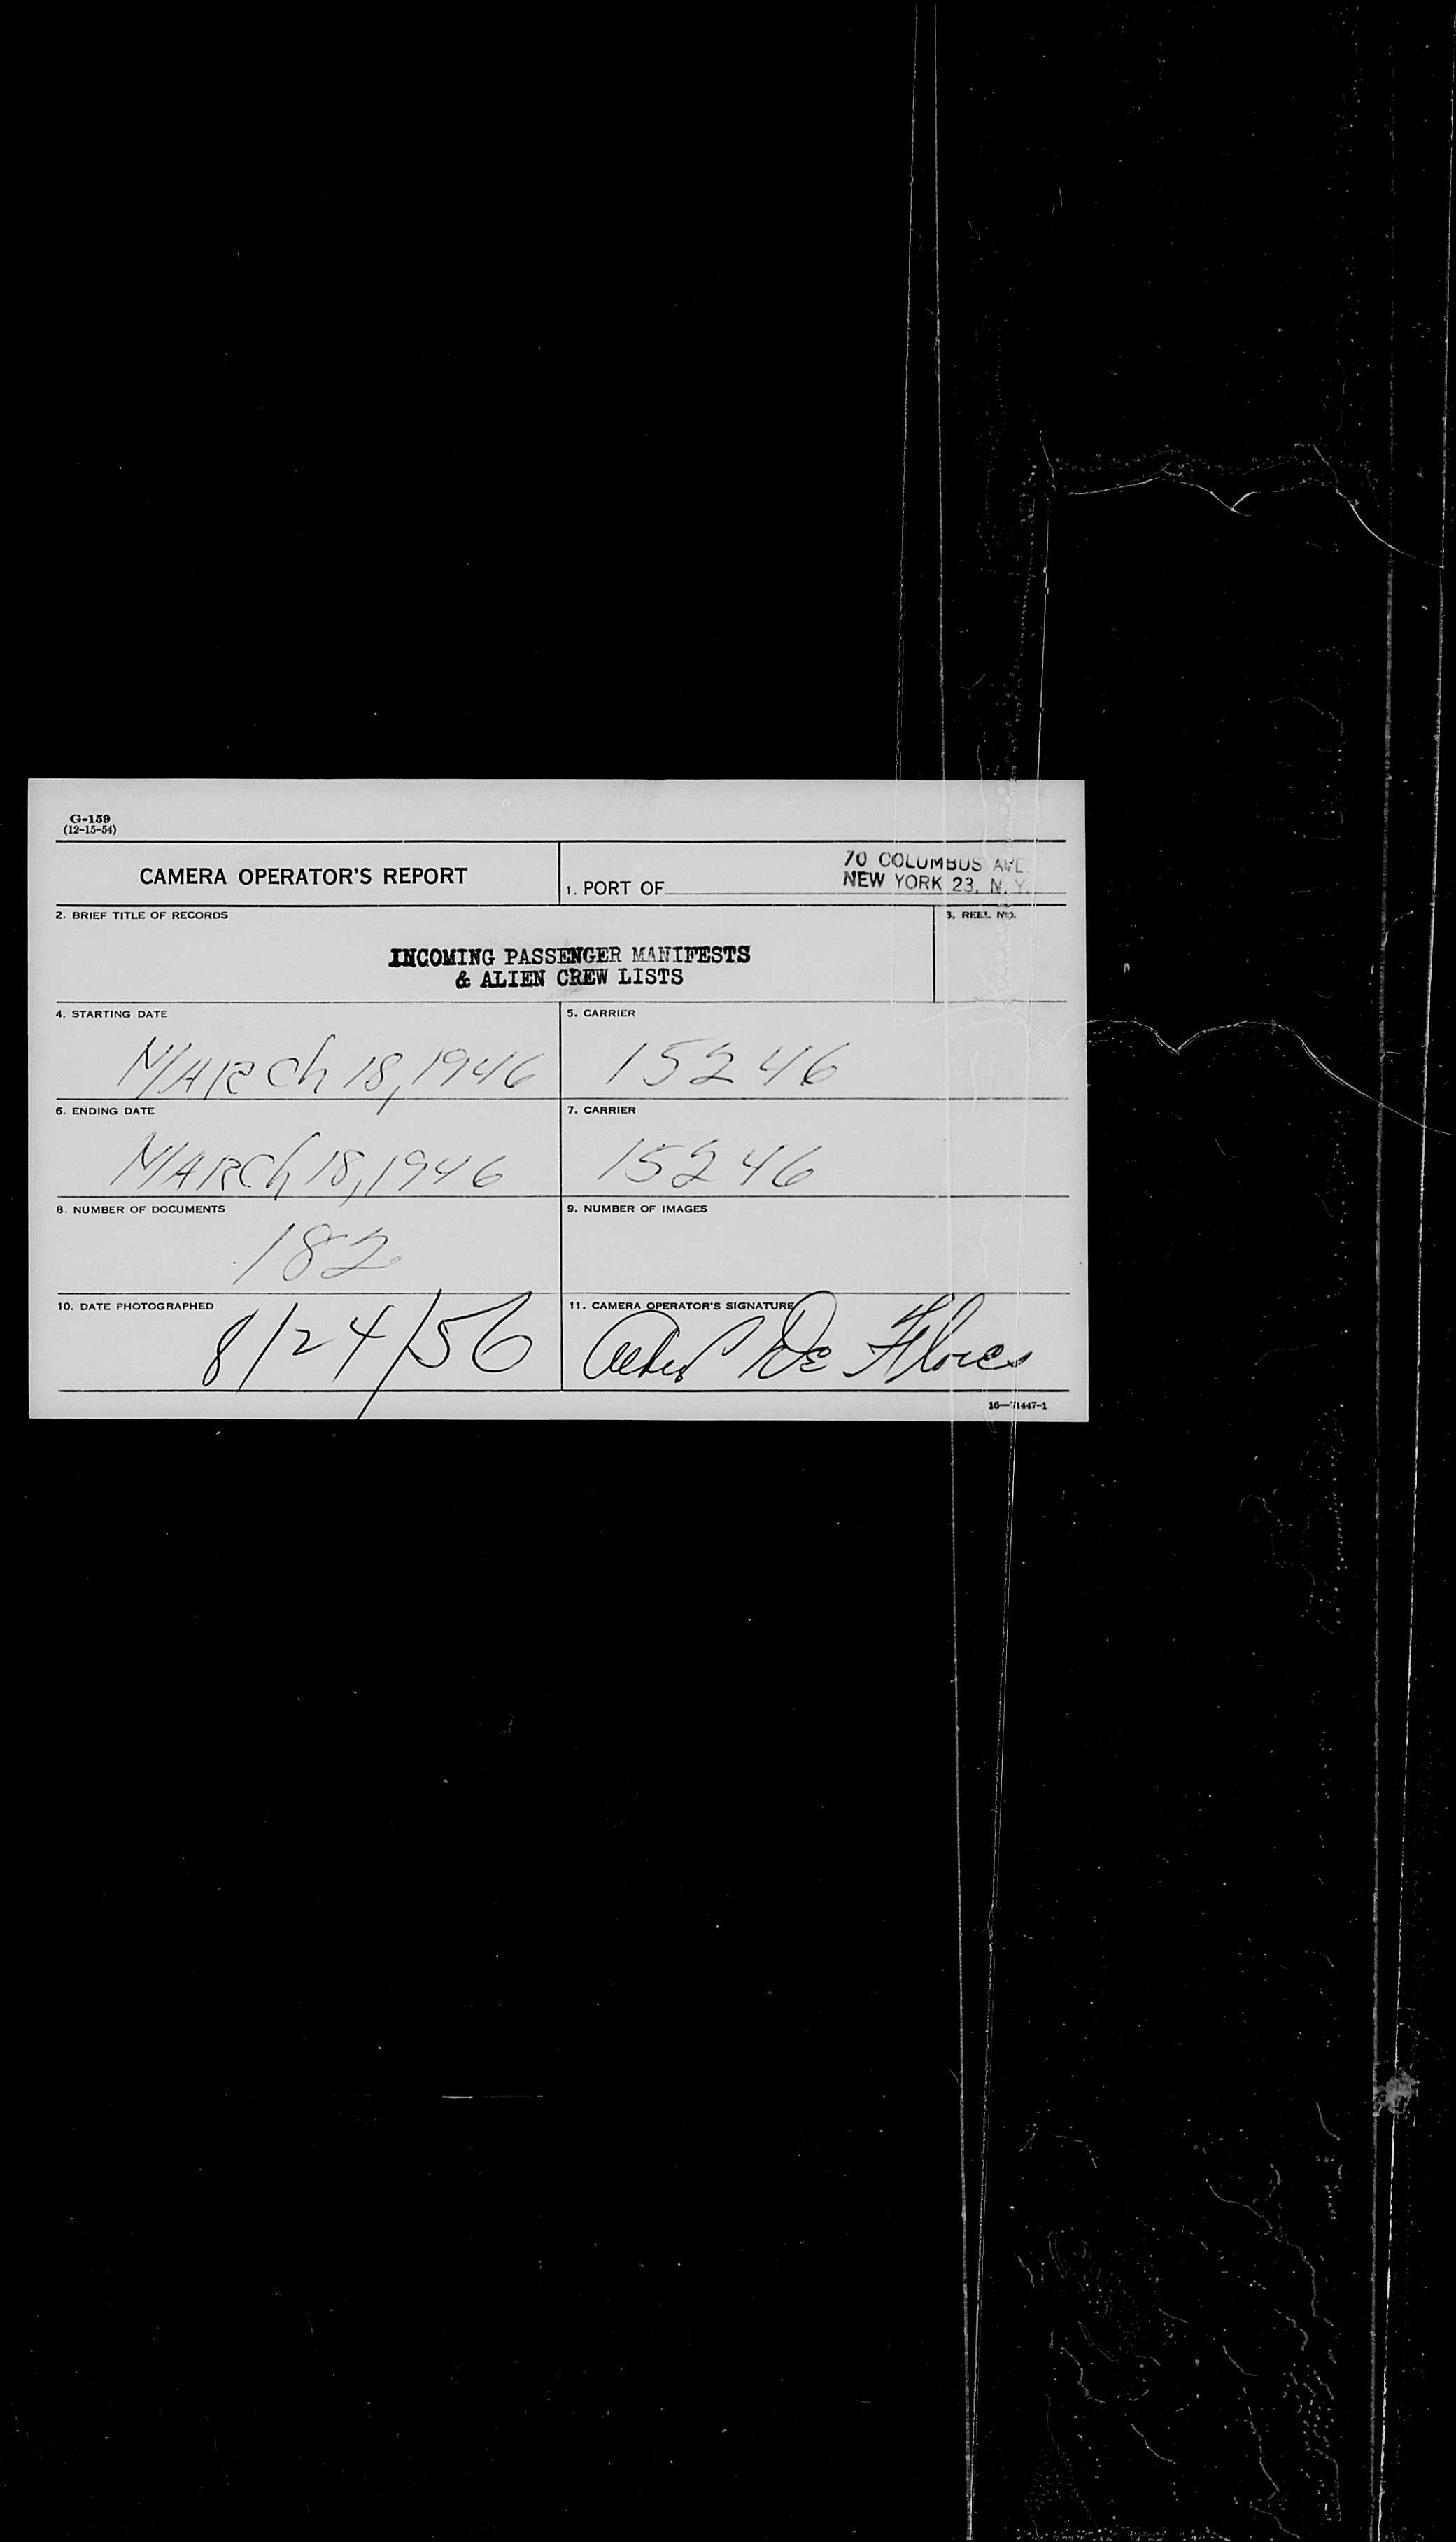 G-159
(12-15-54)
CAMERA OPERATOR'S REPORT
1. PORT OF
70 COLUMBUS AVE.
NEW YORK 23, N. Y.
2. BRIEF TITLE OF RECORDS
3. REEL NO.
INCOMING PASSENGER MANIFESTS
& ALIEN CREW LISTS
4. STARTING DATE
MARCh 18, 1946
5. CARRIER
15246
6. ENDING DATE
MARCh 18, 1946
7. CARRIER
15246
8. NUMBER OF DOCUMENTS
182
9. NUMBER OF IMAGES
10. DATE PHOTOGRAPHED
8/24/56
11. CAMERA OPERATOR'S SIGNATURE
De Flores
16—71447-1